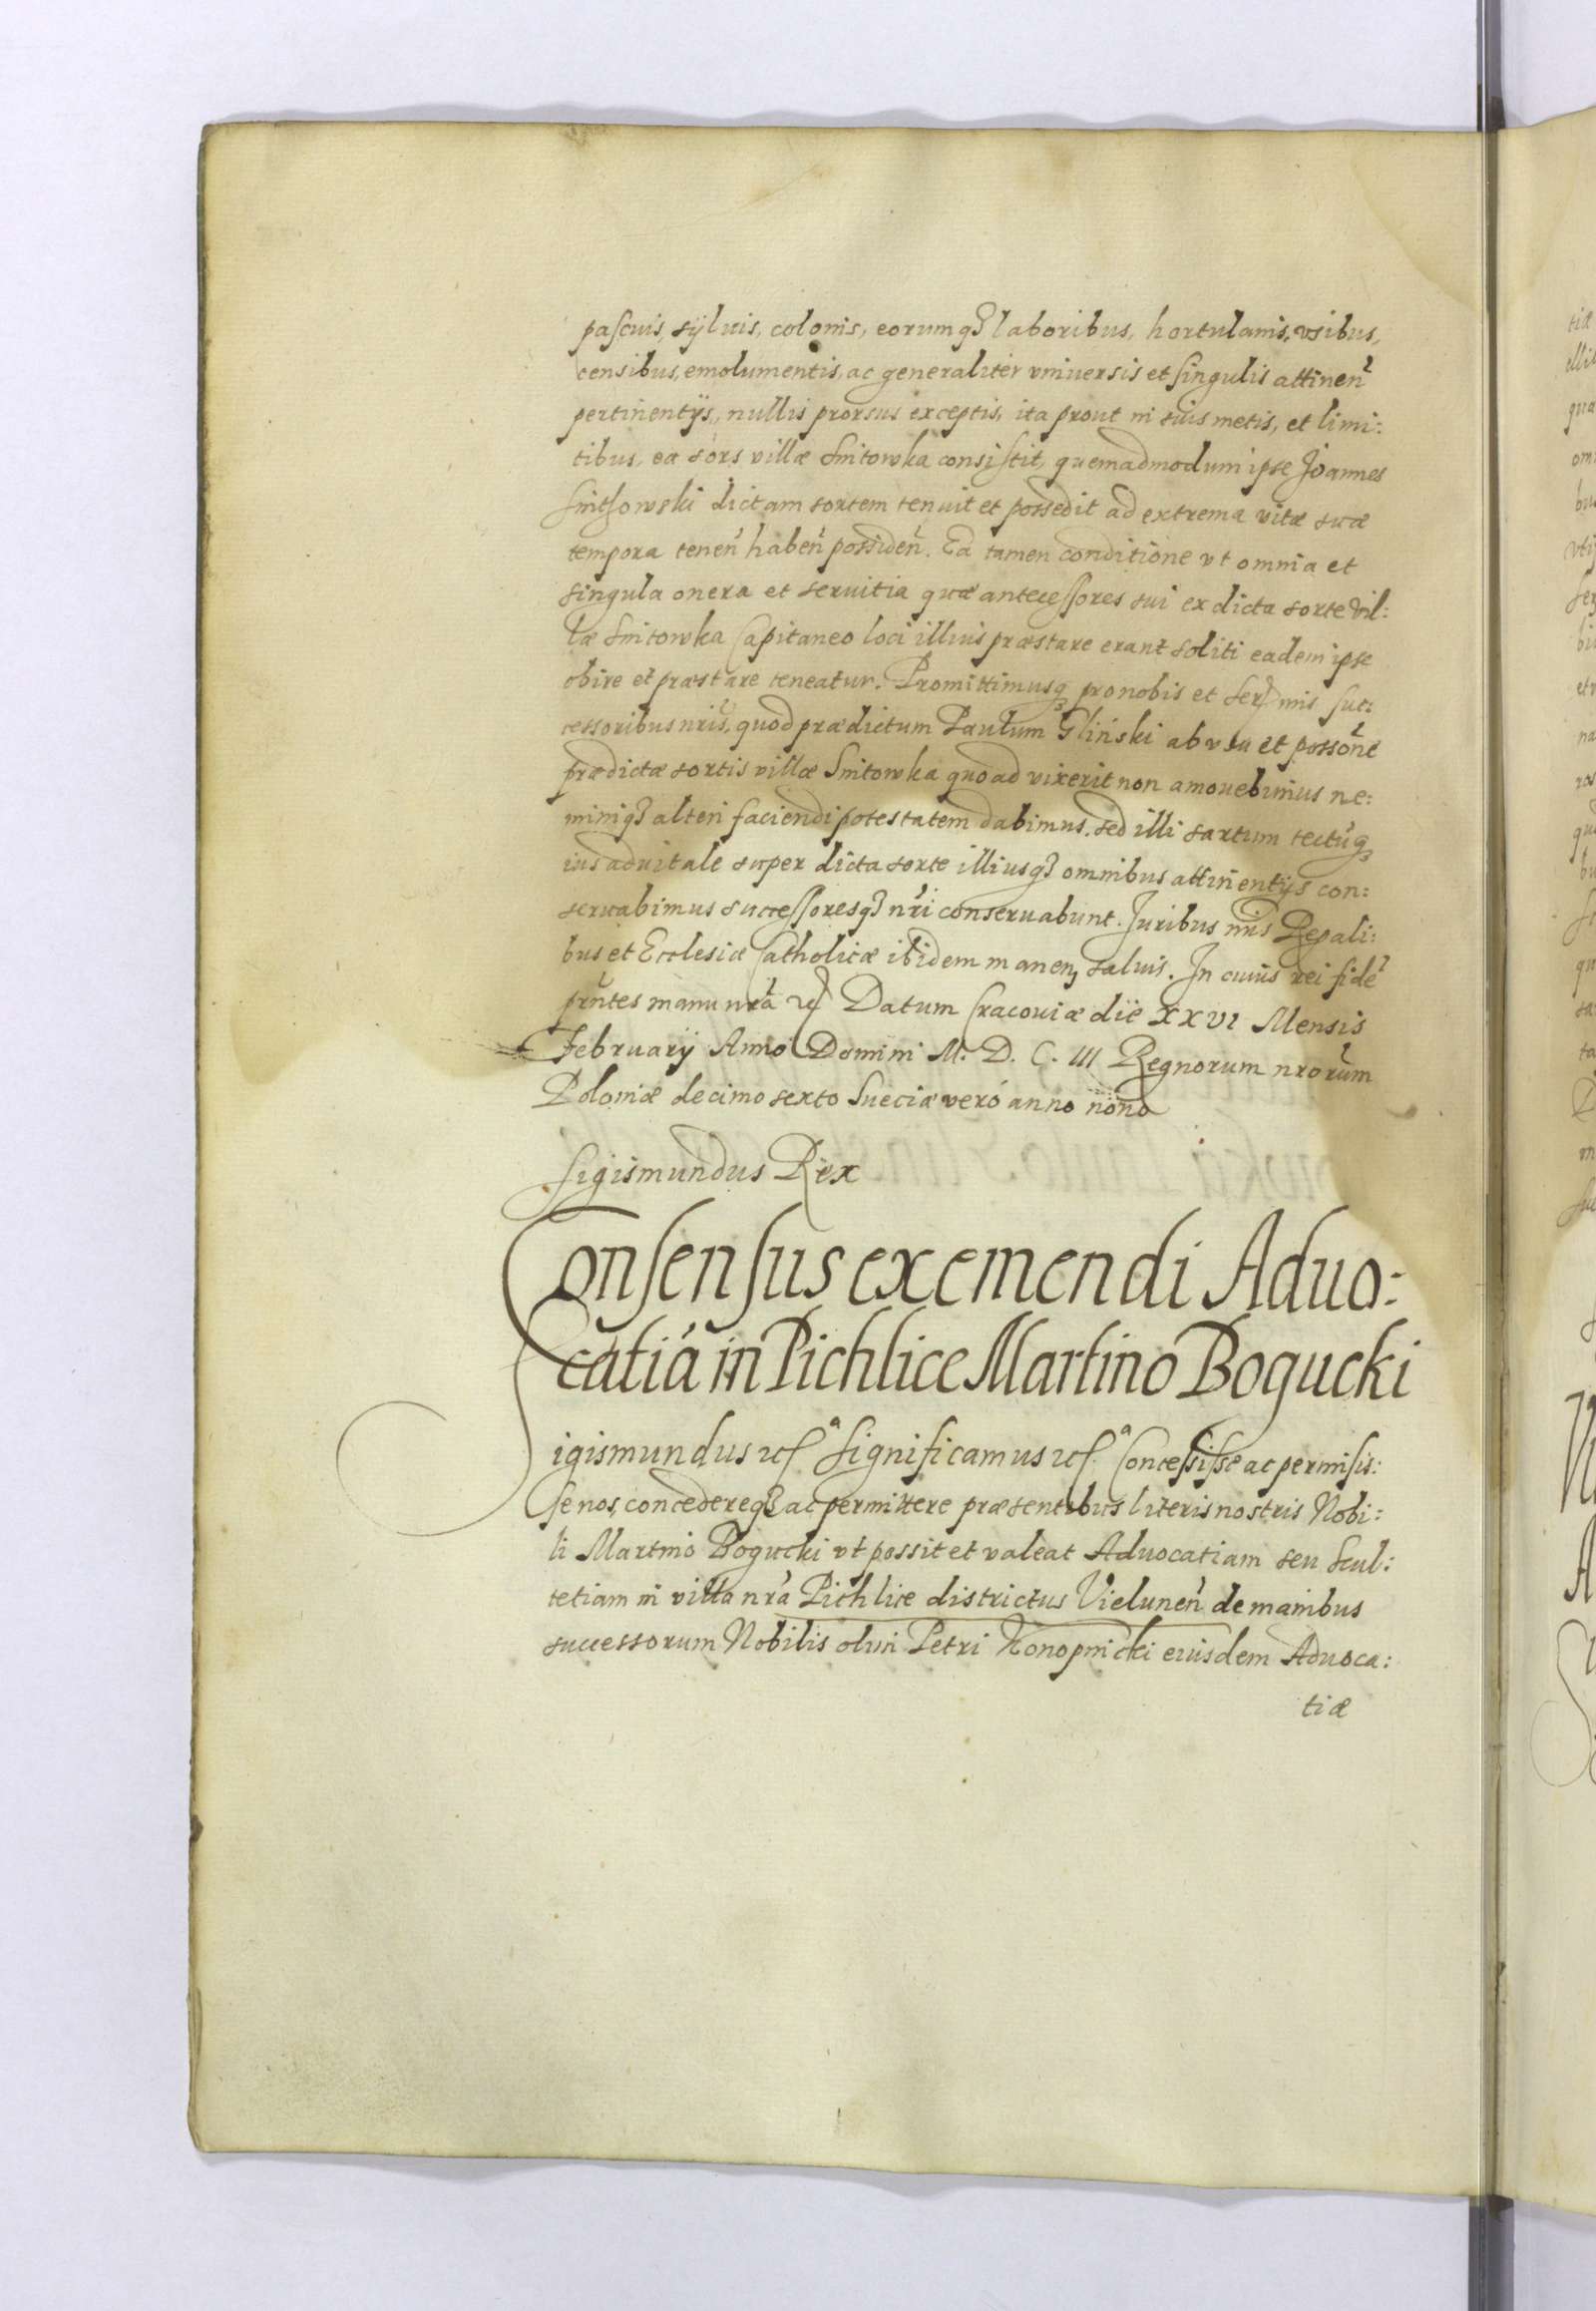 pascuis, sÿluis, colonis, eorumq3 laboribus, hortulanis, vsibus,
censibus, emolumentis, ac generaliter vniuersis et singulis attinen
pertinentÿs, nullis prorsus exceptis, ita prout in suis metis, et limi:
tibus, ea sors villæ Snitowka consistit, quemadmodum ipse Joannes
Snitowski dictam sortem tenuit et possedit ad extrema vitæ suæ
tempora tenen haben possiden. Ea tamen conditione vt omnia et
singula onera et seruitia quæ antecessores sui ex dicta sorte vil:
læ Snitowka Capitaneo loci illius præstare erant soliti eadem ipse
obire et præstare teneatur. Promittimusq3 pro nobis et Ser mis suc:
cessoribus nris, quod prædictum Paulum Gliński ab vsu et possone
prædictæ sortis villæ Snitowka quoad vixerit non amouebimus ne:
miniq3 alteri faciendi potestatem dabimus. sed illi sartum tectuq3
ius aduitale super dicta sorte illiusq3 omnibus attinentÿs con:
seruabimus successoresq3 nri conseruabunt. Juribus nris Regali:
bus et Ecclesiæ Catholicæ ibidem manen, saluis. In cuius rei fide
prntes manu nra etc Datum Cracouiæ die XXVI Mensis
Februarÿ Anno Domini M. D. C. III Regnorum nrorum
Poloniæ decimo sexto Sueciæ veró anno nono
Sigismundus Rex
Consensus exemendi Aduo:
catiá in Pichlice Martino Bogucki
Sigismundus etc. Significamus etc. Concessisse ac permisis:
se nos, concedereq3 ac permittere præsentibus literis nostris Nobi:
li Martino Bogucki vt possit et valeat Aduocatiam seu Scul:
tetiam in villa nra Pichlice districtus Vielunen de manibus
successorum Nobilis olim Petri Konopnicki eiusdem Aduoca:
tiæ